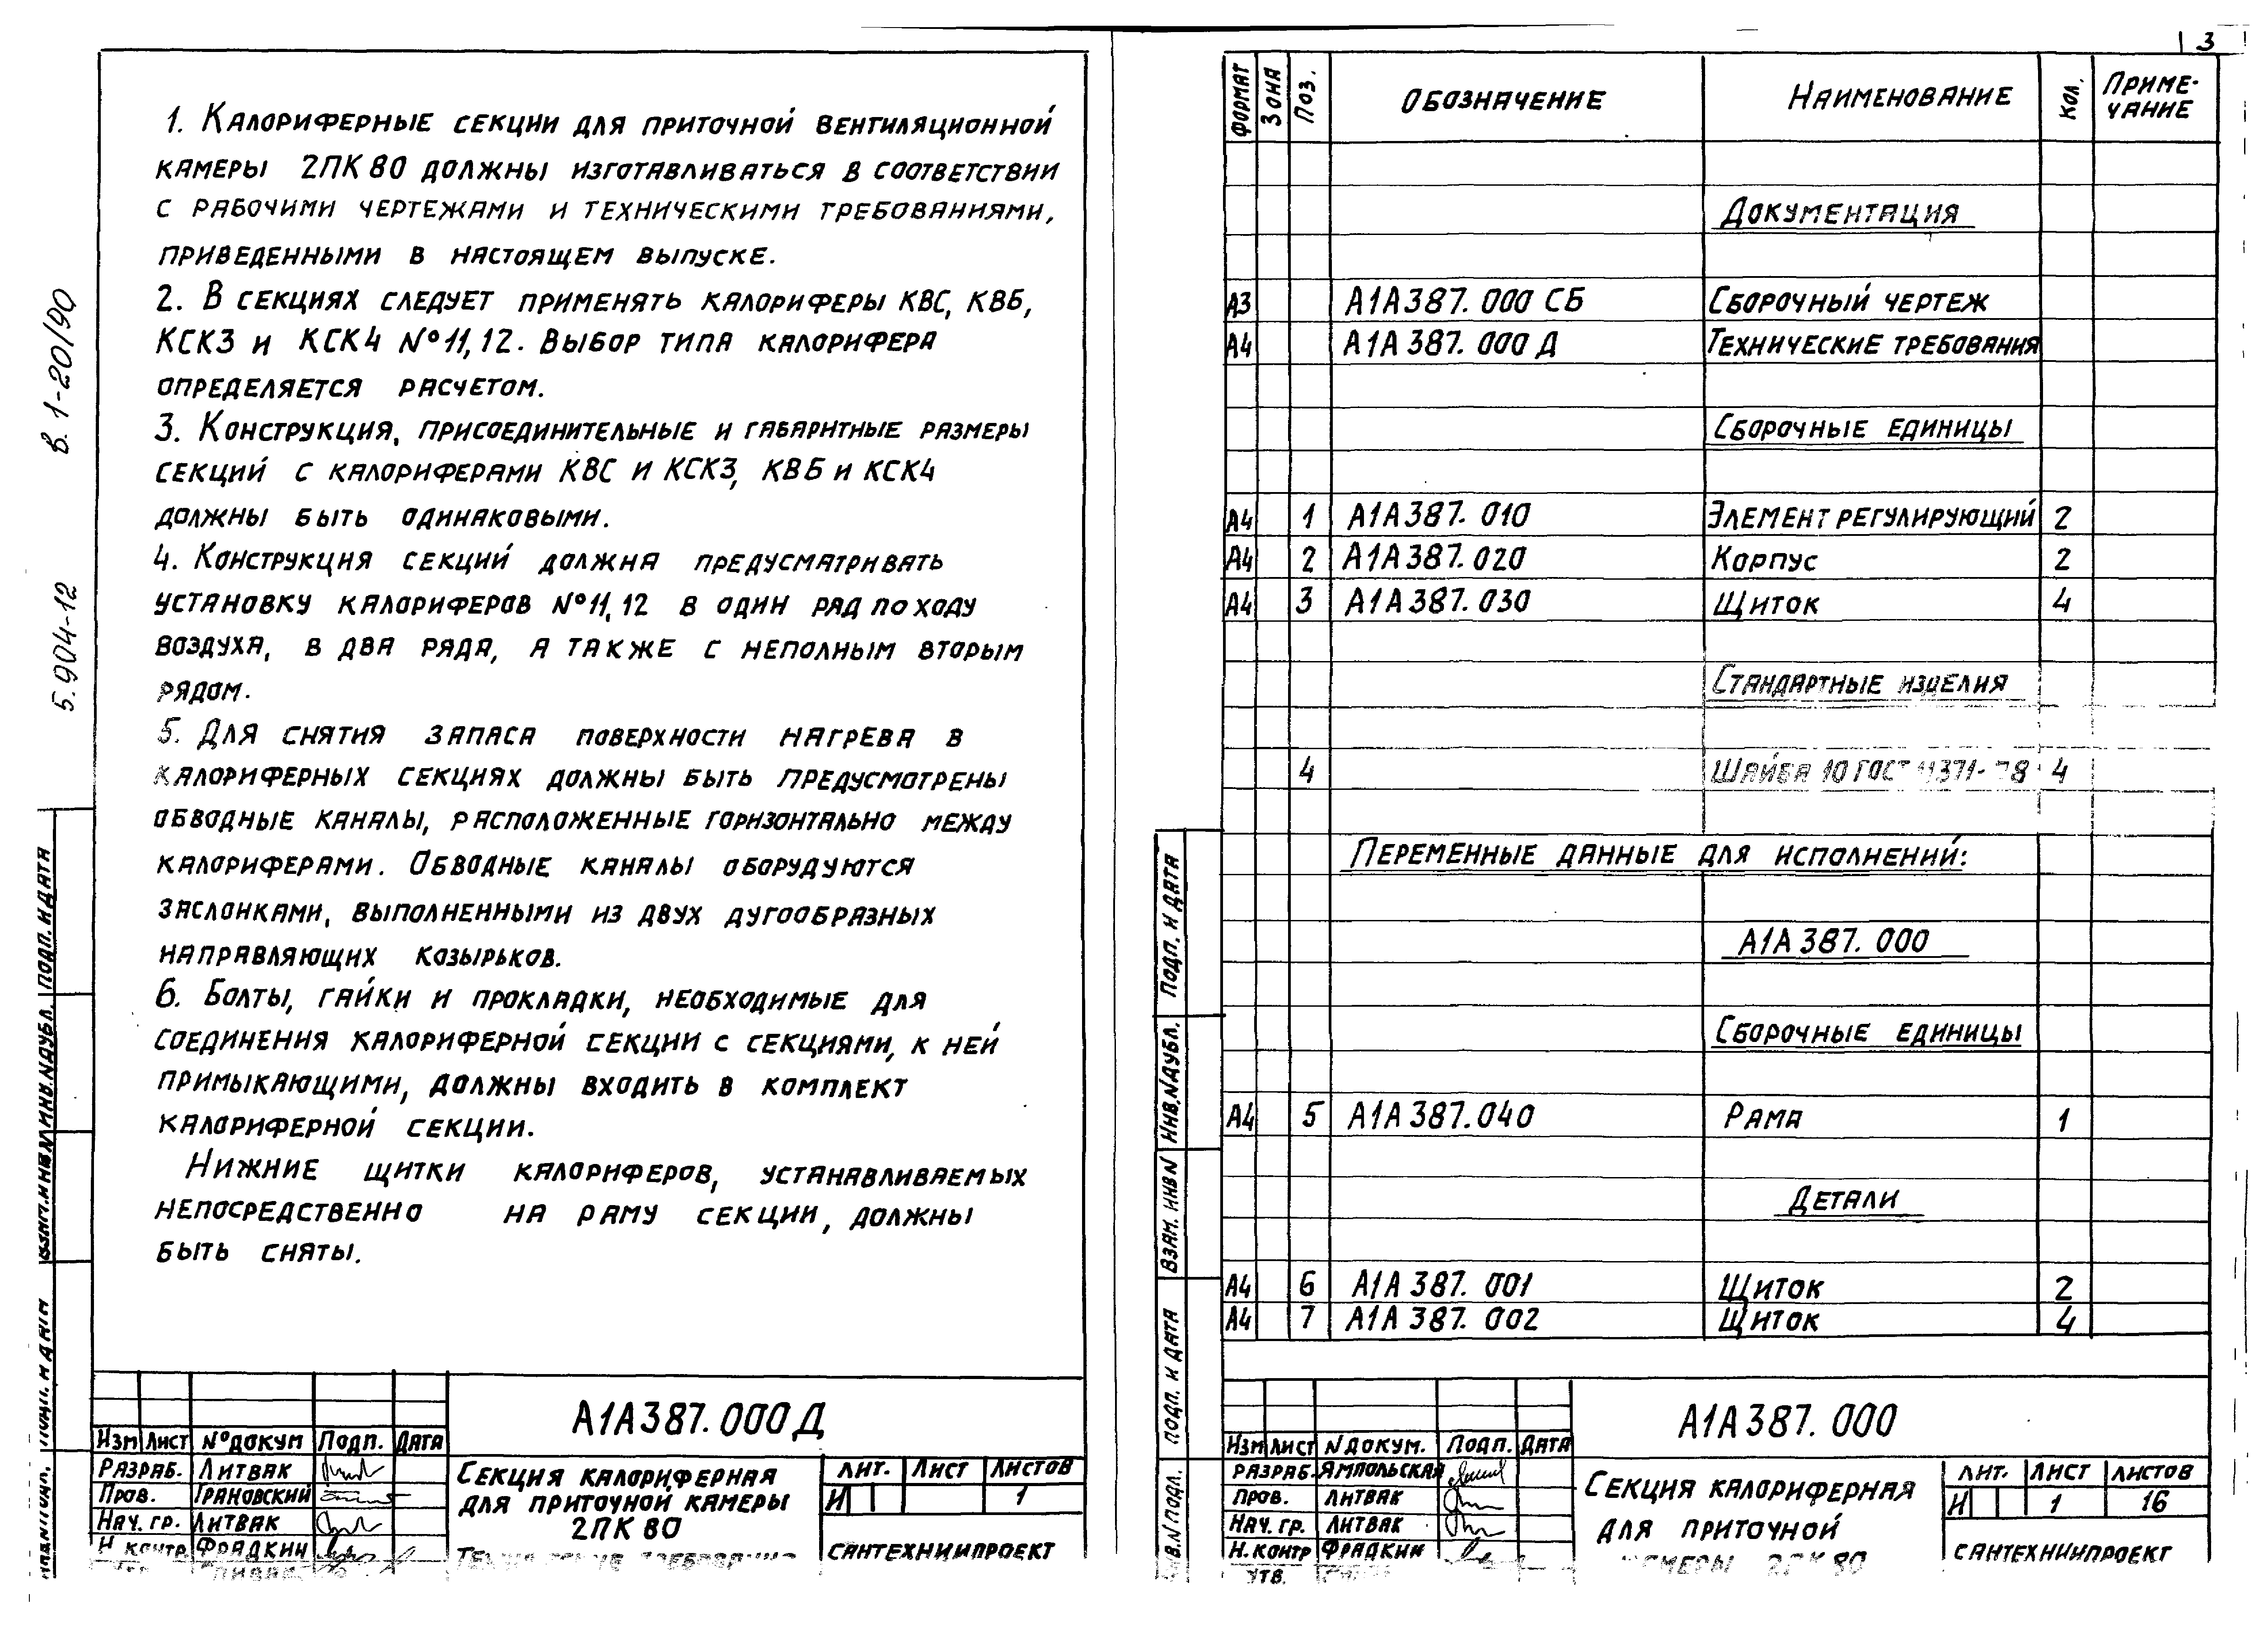 3
5.904-12 в. 1-20/90
1. Калориферные секции для приточной вентиляционной
камеры 2ПК 80 должны изготавливаться в соответствии
с рабочими чертежами и техническими требованиями,
приведенными в настоящем выпуске.
2. В секциях следует применять калориферы КВС, КВБ,
КСК3 и КСК4 №11, 12. Выбор типа калорифера
определяется расчетом.
3. Конструкция, присоединительные и габаритные размеры
секций с калориферами КВС и КСК3, КВБ и КСК4
должны быть одинаковыми.
4. Конструкция секций должна предусматривать
установку калориферов №11, 12 в один ряд по ходу
воздуха, в два ряда, а также с неполным вторым
рядом.
5. Для снятия запаса поверхности нагрева в
калориферных секциях должны быть предусмотрены
обводные каналы, расположенные горизонтально между
калориферами. Обводные каналы оборудуются
заслонками, выполненными из двух дугообразных
направляющих козырьков.
6. Болты, гайки и прокладки, необходимые для
соединения калориферной секции с секциями, к ней
примыкающими, должны входить в комплект
калориферной секции.
Нижние щитки калориферов, устанавливаемых
непосредственно на раму секции, должны
быть сняты.
Подп. и дата
Инв.N дубл.
Взам.инв N
Подп. и дата
А1А387.000Д
Изм Лист №докум Подп. Дата
Разраб. Литвак
Пров. Грановский
Нач. гр. Литвак
Н контр Фрадкин
Секция калориферная
для приточной камеры
2ПК 80
Лит. Лист Листов
И 1
Сантехниипроект
Формат Зона Поз. Обозначение Наименование Кол. Приме-
чание
Документация
А3 А1А387. 000 СБ Сборочный чертеж
А4 А1А 387. 000 Д Технические требования
Сборочные единицы
А4 1 А1А387. 010 Элемент регулирующий 2
А4 2 А1А387. 020 Корпус 2
А4 3 А1А387. 030 Щиток 4
Стандартные изделия
4 Шайба 10 ГОСТ 4
Переменные данные для исполнений:
А1А 387. 000
Сборочные единицы
А4 5 А1А 387.040 Рама 1
Детали
А4 6 А1А 387. 001 Щиток 2
А4 7 А1А 387. 002 Щиток 4
Подп. и дата
Инв.N дубл.
Взам. инв N
Подп. и дата
N подл.
А1А 387. 000
Изм Лист N докум. Подп. Дата
Разраб. Ямпольская
Пров. Литвак
Нач. гр. Литвак
Н.контр Фрадкин
Утв.
Секция калориферная
для приточной
камеры 2ПК 80
Лит. Лист Листов
И 1 16
Сантехниипроект